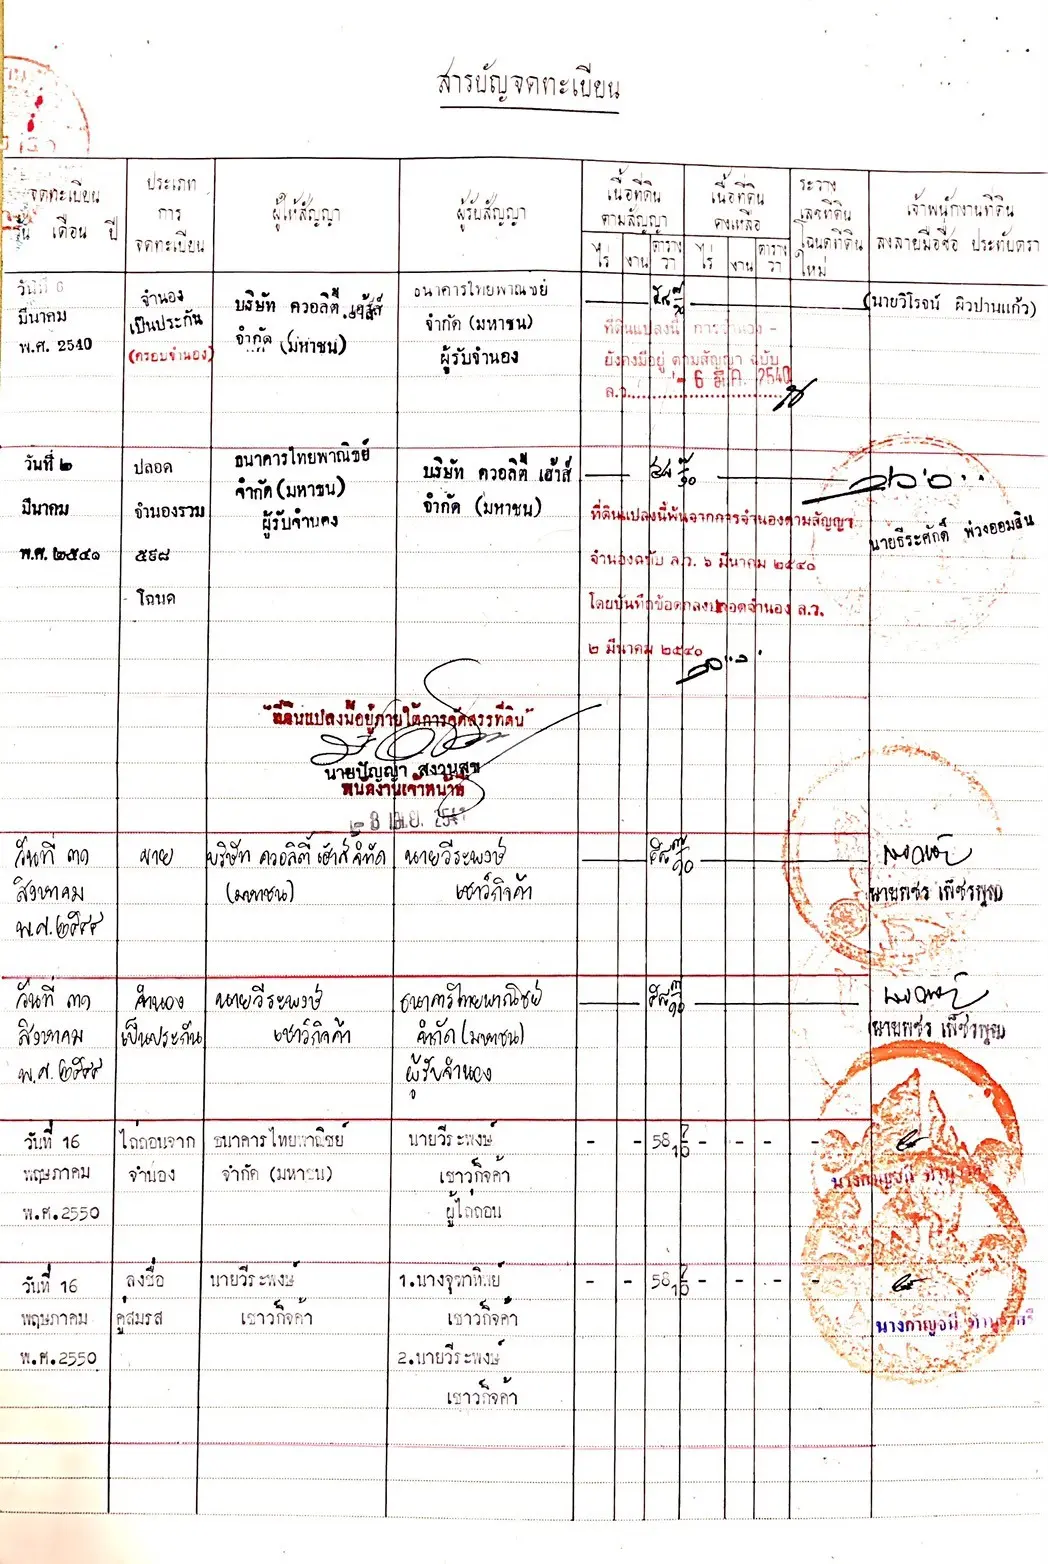 สารบัญจดทะเบียน
จดทะเบียน
วัน เดือน ปี
ประเภท
การ
จดทะเบียน
ผู้ให้สัญญา
ผู้รับสัญญา
เนื้อที่ดิน
ตามสัญญา
ไร่ งาน ตาราง
วา
เนื้อที่ดิน
คงเหลือ
ไร่ งาน ตาราง
วา
ระวาง
เลขที่ดิน
โฉนดที่ดิน
ใหม่
เจ้าพนักงานที่ดิน
ลงลายมือชื่อ ประทับตรา
วันที่ 6
มีนาคม
พ.ศ. 2540
จำนอง
เป็นประกัน
(ครอบจำนอง)
บริษัท ควอลิตี้ เฮ้าส์
จำกัด (มหาชน)
ธนาคารไทยพาณิชย์
จำกัด (มหาชน)
ผู้รับจำนอง
๕๘ ๗/๑๐
(นายวิโรจน์ ผิวปานแก้ว)
ที่ดินแปลงนี้ การจำนอง -
ยังคงมีอยู่ ตามสัญญา ฉบับ
ล.ว. - 6 มี.ค. 2540
วันที่ ๒
มีนาคม
พ.ศ. ๒๕๔๑
ปลอด
จำนองรวม
๕๙๘
โฉนด
ธนาคารไทยพาณิชย์
จำกัด (มหาชน)
ผู้รับจำนอง
บริษัท ควอลิตี้ เฮ้าส์
จำกัด (มหาชน)
๕๘ ๗/๑๐
นายธีระศักดิ์ พ่วงออมสิน
ที่ดินแปลงนี้พ้นจากการจำนองตามสัญญา
จำนองฉบับ ล.ว. ๖ มีนาคม ๒๕๔๐
โดยบันทึกข้อตกลงปลอดจำนอง ล.ว.
๒ มีนาคม ๒๕๔๐
"ที่ดินแปลงนี้อยู่ภายใต้การจัดสรรที่ดิน"
นายปัญญา สงวนสุข
พนักงานเจ้าหน้าที่
วันที่ ๓๑
สิงหาคม
พ.ศ. ๒๕๔๔
ขาย
บริษัท ควอลิตี้ เฮ้าส์ จำกัด
(มหาชน)
นายวีระพงษ์
เชาว์กิจค้า
๕๘ ๗/๑๐
นายพชร เพ็ชรพูน
วันที่ ๓๑
สิงหาคม
พ.ศ. ๒๕๔๔
จำนอง
เป็นประกัน
นายวีระพงษ์
เชาว์กิจค้า
ธนาคารไทยพาณิชย์
จำกัด (มหาชน)
ผู้รับจำนอง
๕๘ ๗/๑๐
นายพชร เพ็ชรพูน
วันที่ 16
พฤษภาคม
พ.ศ.2550
ไถ่ถอนจาก
จำนอง
ธนาคารไทยพาณิชย์
จำกัด (มหาชน)
นายวีระพงษ์
เชาวกิจค้า
ผู้ไถ่ถอน
- - 58 7/10 - - - -
วันที่ 16
พฤษภาคม
พ.ศ.2550
ลงชื่อ
คู่สมรส
นายวีระพงษ์
เชาวกิจค้า
1.นางจุฑาทิพย์
เชาวกิจค้า
2.นายวีระพงษ์
เชาวกิจค้า
- - 58 7/10 - - - -